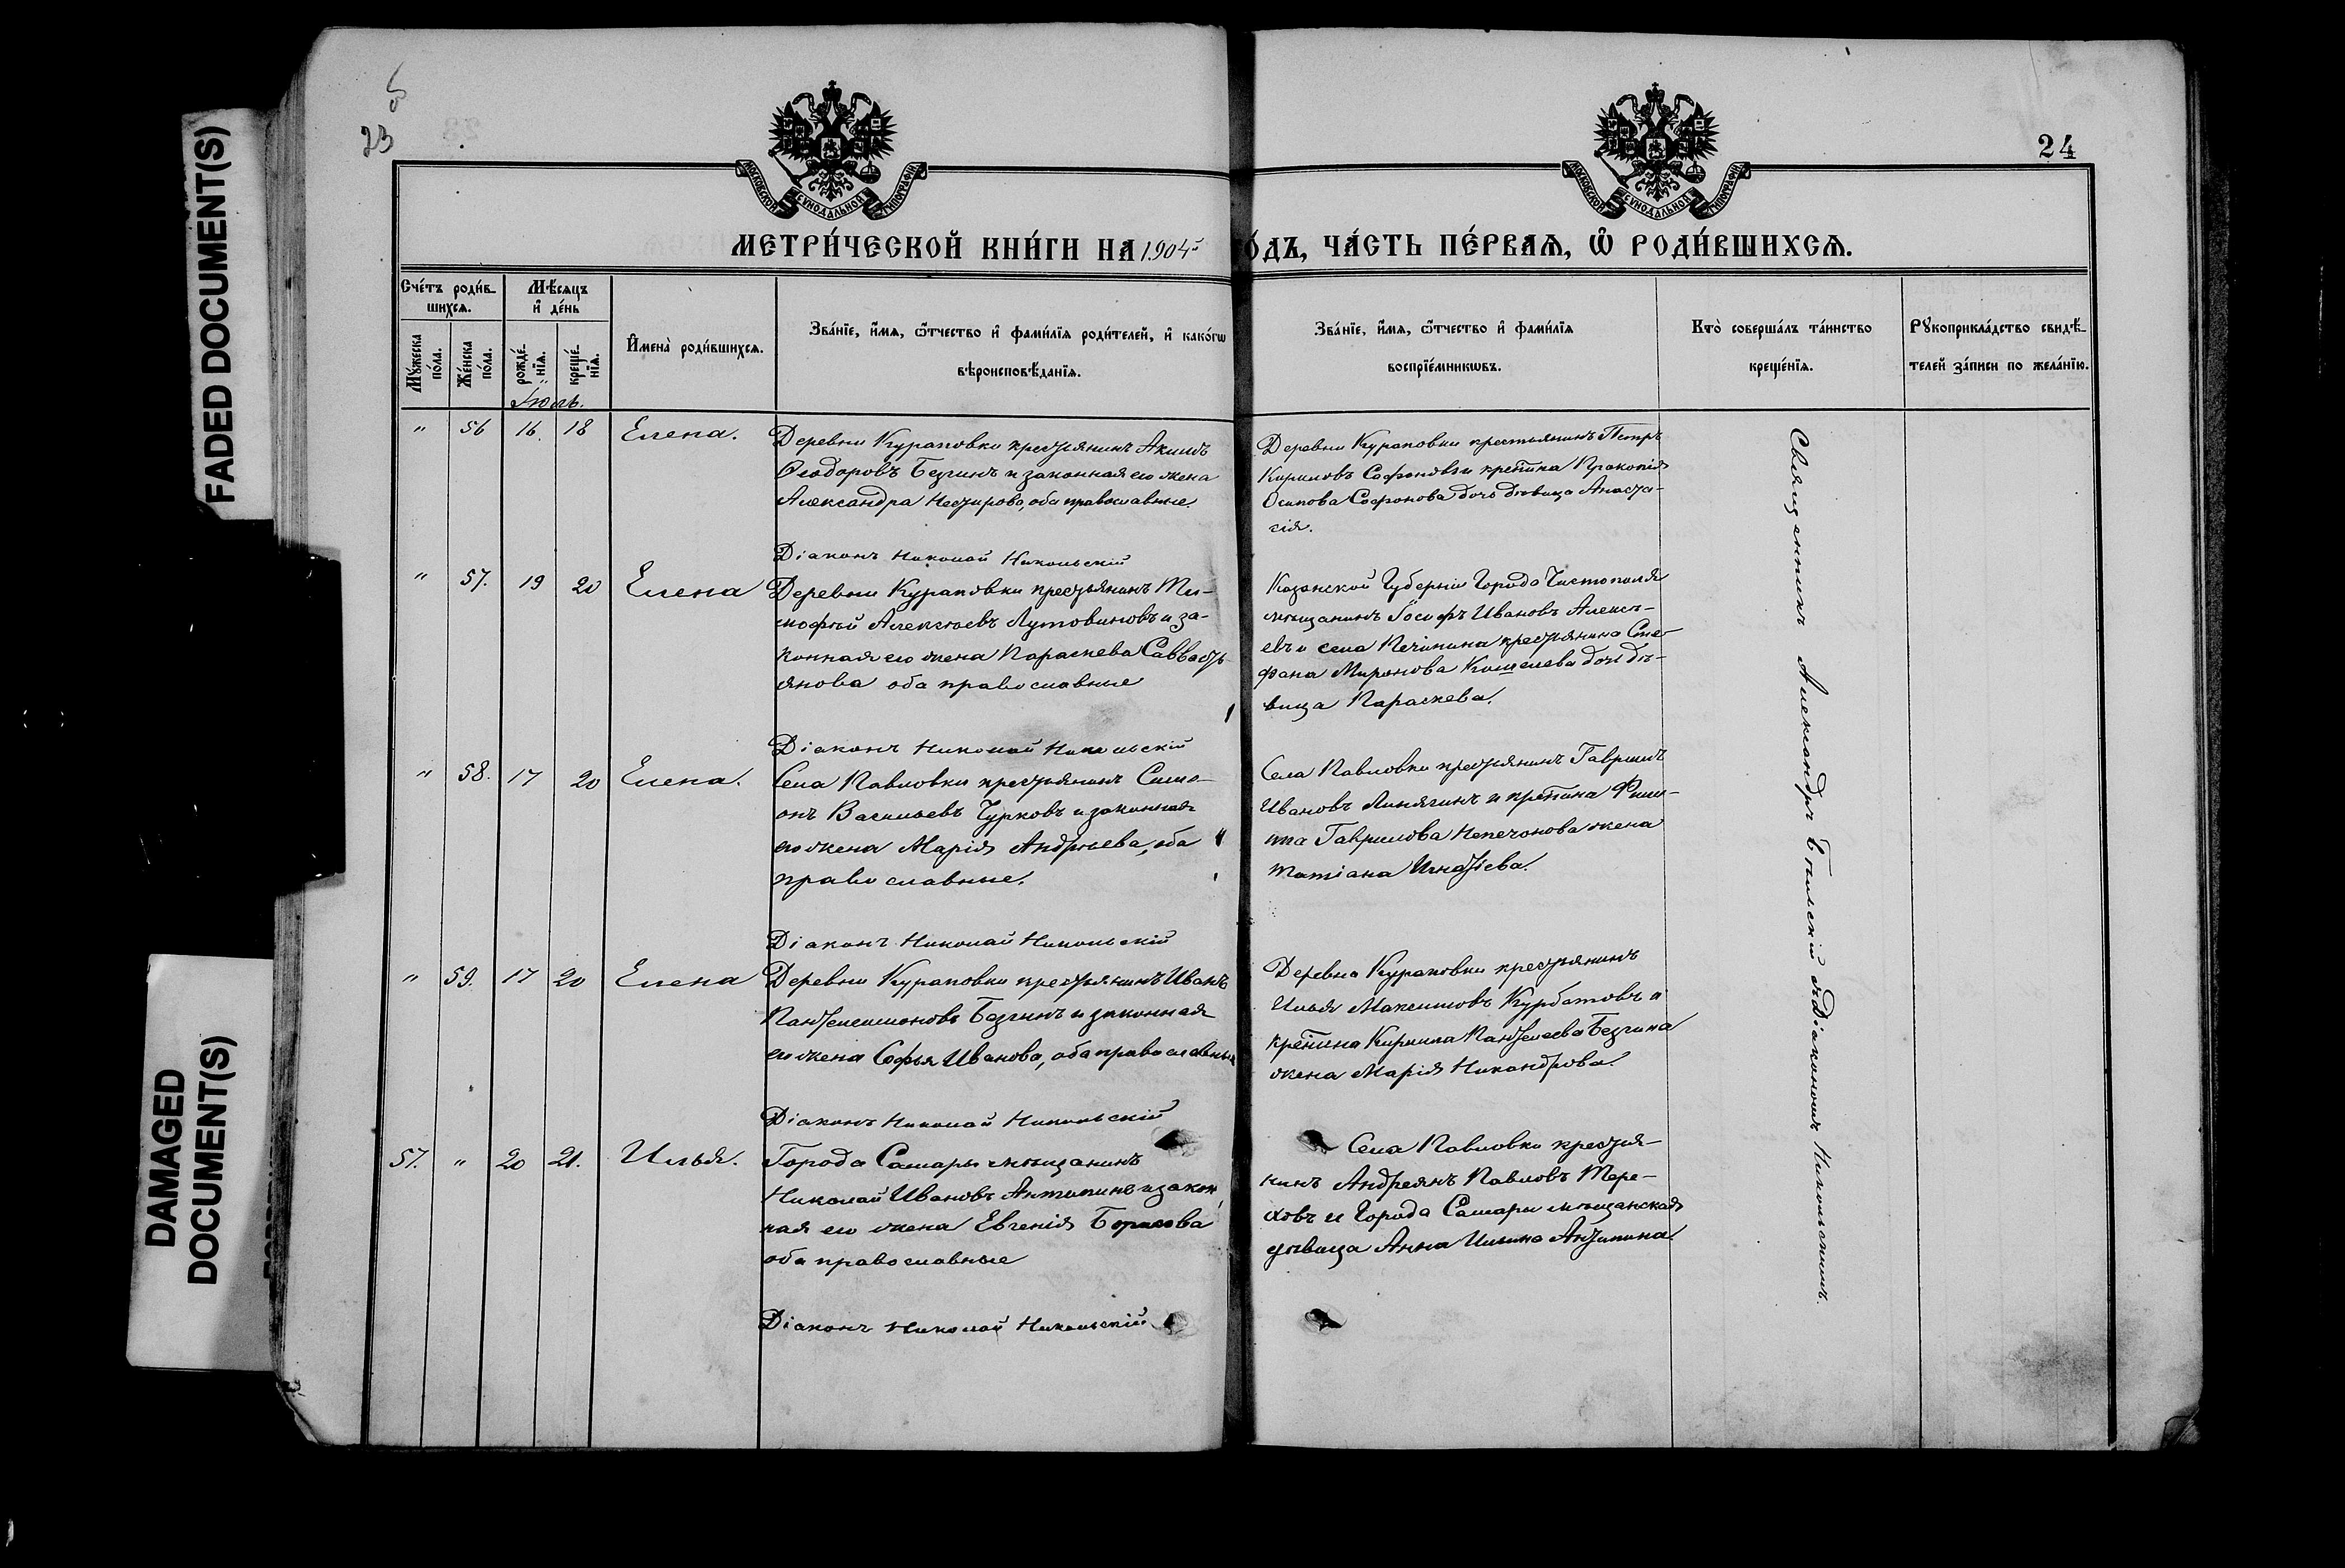 23
24
МЕТРИ́ЧЕСКОЙ КНИ́ГИ НА 1904й
О́ДЪ, ЧА́СТЬ ПЕ́РВАѦ, Ѽ РОДИ́ВШИХСѦ.
Сче́тъ роди́в-
шихсѧ.
Мꙋ́жеска по́ла.
Же́нска по́ла.
Мѣ́сѧцъ
и҆ де́нь
рожде́-нїѧ.
креще́-нїѧ.
И҆мена̀ роди́вшихсѧ.
Зва́нїе, и҆́мѧ, ѻ҆́тчество и҆ фами́лїѧ роди́телей, и҆ како́гѡ
вѣроисповѣ́данїѧ.
Зва́нїе, и҆́мѧ, ѻ҆́тчество и҆ фами́лїѧ
воспрїе́мникѡвъ.
Кто̀ соверша́лъ та́инство
креще́нїѧ.
Рꙋкоприкла́дство свидѣ́-
телей за́писи по жела́нїю.
Іюль.
" 56 16. 18 Елена.
Деревни Кураповки крестьянинъ Акимъ
Ѳеодоровъ Безгинъ и законная его жена
Александра Несторова, оба православные.
Діаконъ Николай Никольскій
Деревни Кураповки крестьянинъ Петръ
Кириловъ Софоновъ и крет̃ина Прокопія
Осипова Софонова дочь дѣвица Анаста-
сія.
" 57. 19 20 Елена
Деревни Кураповки крестьянинъ Ти-
мофѣй Алексѣевъ Лутовиновъ и за-
конная его жена Параскева Савваст-
янова оба православные
Діаконъ Николай Никольскій
Казанской Губерніи Города Чистополя
мѣщанинъ Іосифъ Ивановъ Алексѣ-
евъ и села Печинина крестьянина Сте-
фана Миронова Кошелева дочь дѣ-
вица Параскева.
" 58. 17 20 Елена.
Села Павловки крестьянинъ Симе-
онъ Васильевъ Чурковъ и законная
его жена Марія Андреева, оба
православные.
Діаконъ Николай Никольскій
Села Павловки крестьянинъ Гавріилъ
Ивановъ Линягинъ и крет̃ина Фили-
ппа Гаврилова Непечонова жена
Татіана Игнатіева.
" 59. 17 20 Елена
Деревни Кураповки крестьянинъ Иванъ
Пантелеимоновъ Безгинъ и законная
его жена Софья Иванова, оба православные
Діаконъ Николай Никольскій
Деревни Кураповки крестьянинъ
Илья Максимовъ Курбатовъ и
крет̃ина Кирилла Пантелеева Безгина
жена Марія Никандрова.
57. " 20 21. Илья.
Города Самары мѣщанинъ
Николай Ивановъ Антипинъ и закон
ная его жена Евгенія Борисова
оба православные
Діаконъ Николай Никольскій
Села Павловки крестья-
нинъ Андреянъ Павловъ Тере-
ховъ и Города Самары мѣщанская
дѣвица Анна Ильина Антипина.
Священникъ Александръ съ Діакономъ Никольскимъ.
МОСКОВСКОЙ СѴНОДАЛЬНОЙ ТИПОГРАФІИ
МОСКОВСКОЙ СѴНОДАЛЬНОЙ ТИПОГРАФІИ
FADED DOCUMENT(S)
DAMAGED
DOCUMENT(S)